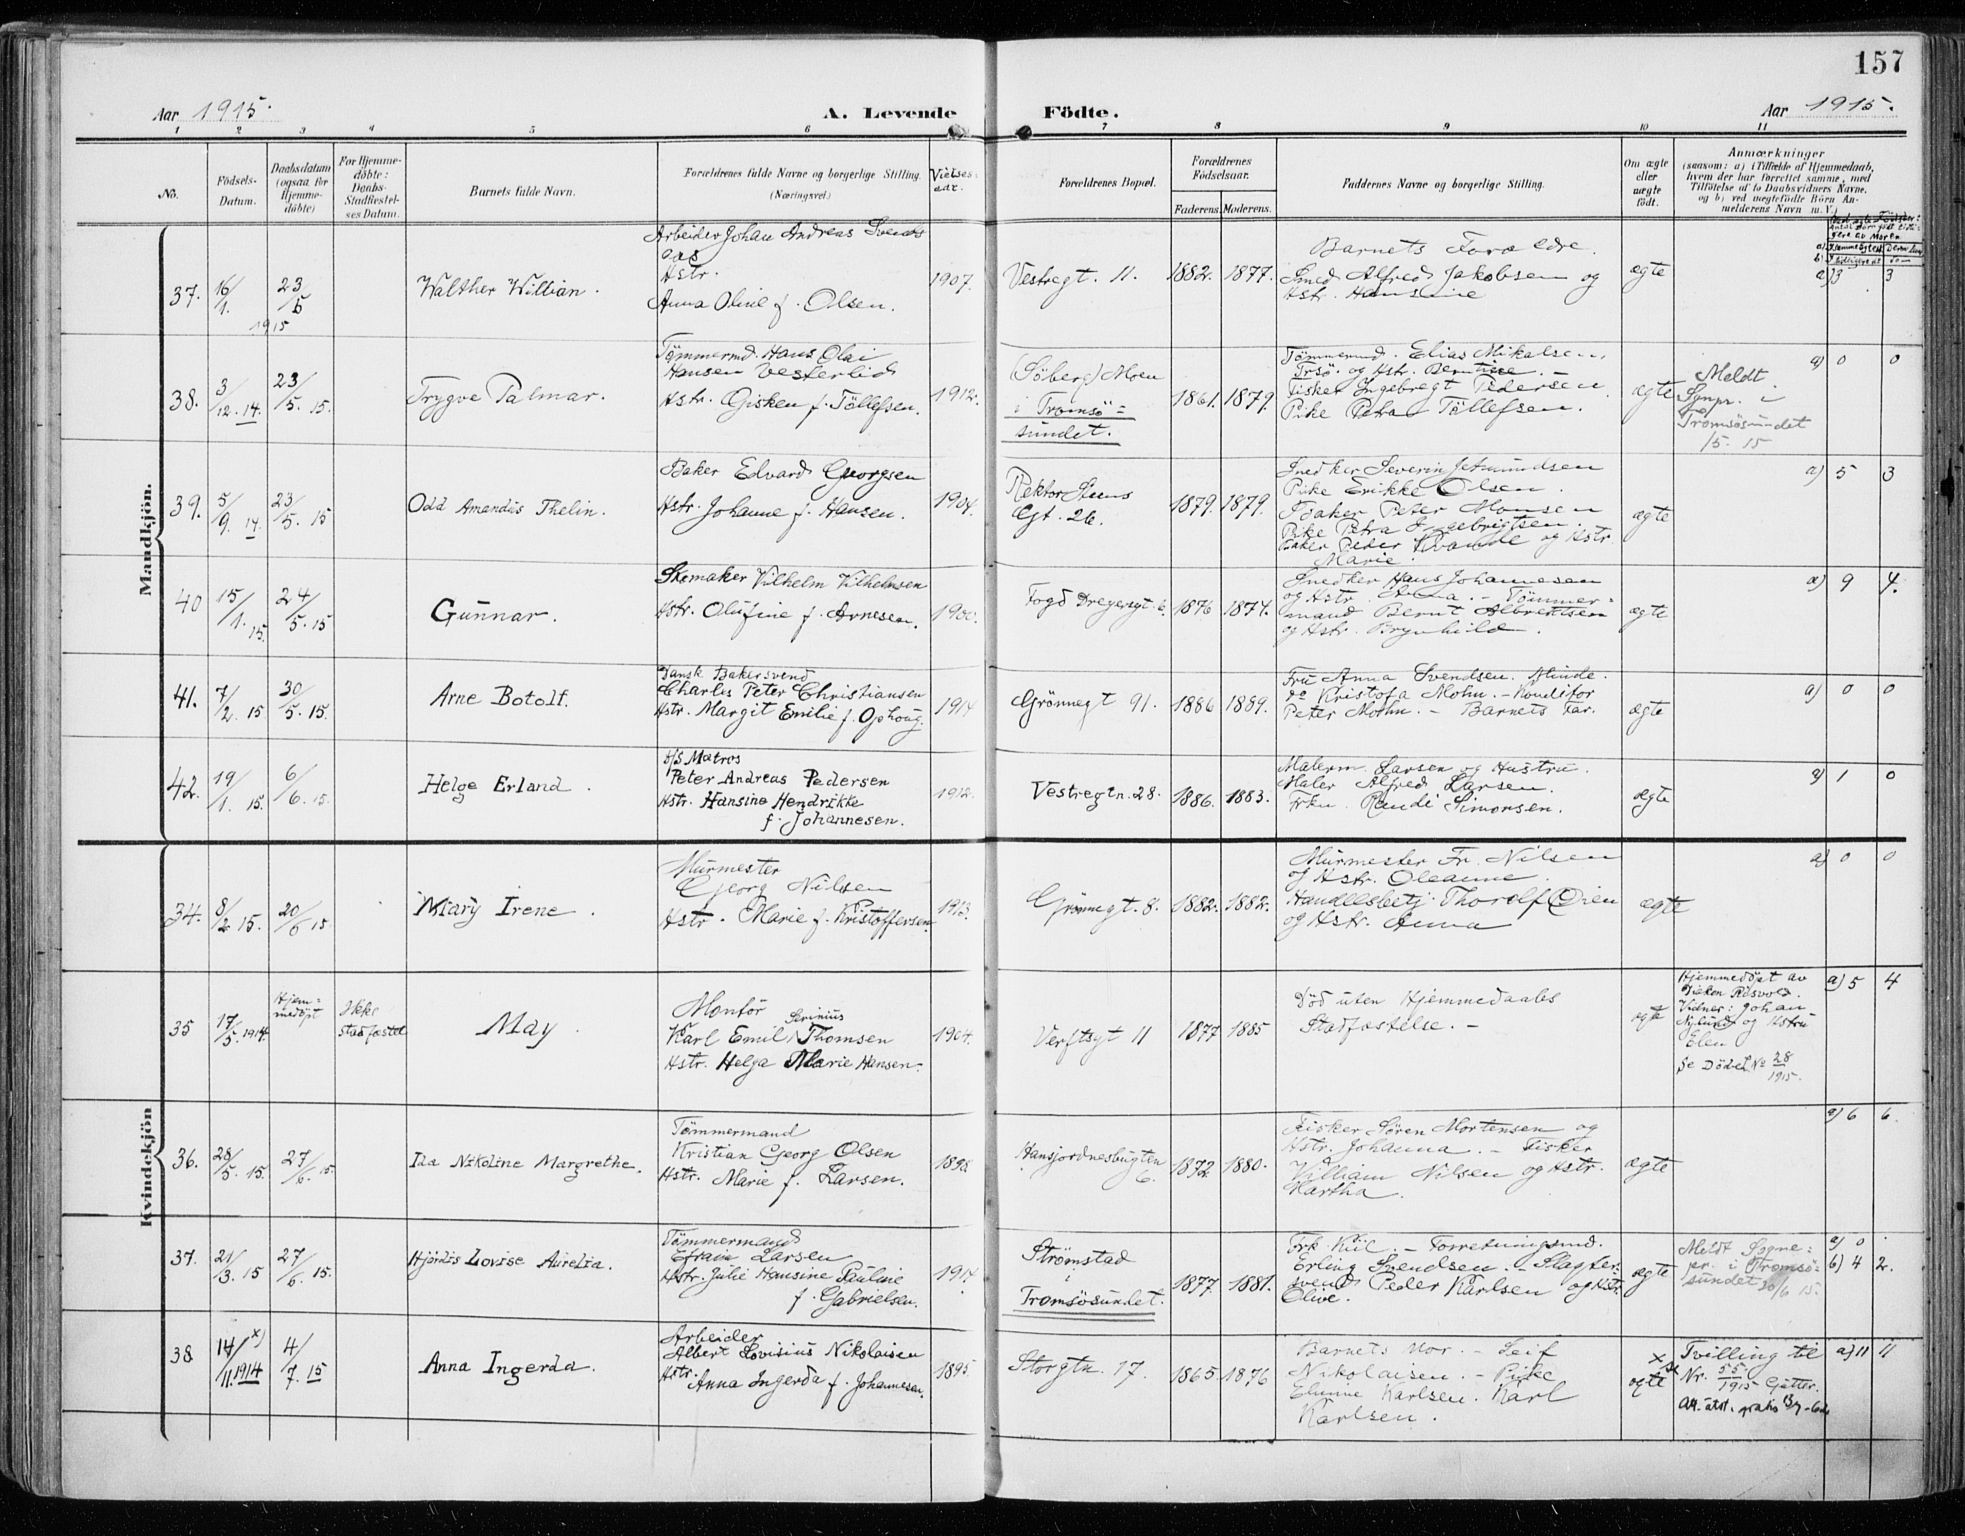 157
Aar 1915.
A. Levende
Födte.
Aar 1915.
1 2 3 4 5 6 7 8 9 10 11
No.
Födsels-
Datum.
Daabsdatum
(ogsaa for
Hjemme-
döbte)
For Hjemme-
döbte:
Daabs-
Stadfæstel-
ses Datum.
Barnets fulde Navn.
Forældrenes fulde Navne og borgerlige Stilling.
(Næringsvei.)
Vielses-
aar.
Forældrenes Bopæl.
Forældrenes
Födselsaar.
Faderens. Moderens.
Faddernes Navne og borgerlige Stilling.
Om ægte
eller
uægte
födt.
Anmærkninger
(saasom: a) i Tilfælde af Hjemmedaab,
hvem der har forrettet samme, med
Tilföielse af to Daabsvidners Navne,
og b) ved uegtefödte Börn An-
melderens Navn m. V.)
Mandkjön.
37.
16/1.
23/5
1915
Walther William.
Arbeider Johan Andreas
Hstr.
Anna Oline f. Olsen.
1907.
Vestregt. 11.
1882. 1877.
Barnets Forældre.
Smed Alfred Jakobsen og
Hstr. Hansine
ægte
a) 3 3
38.
3/12. 14.
23/5. 15.
Trygve Palmar.
Tømmermd. Hans Olai
Hansen Vesterlid
Hstr. Gisken f. Tøllefsen.
1912.
(Söberg) Moen
i Tromsö=
sundet.
1861. 1879.
Tømmermd. Elias Mikalsen,
Trsö. og Hstr. Berntine. –
Fisker Ingebregt Pedersen
Pike Petra Tøllefsen.
ægte
Meldt
Sgnpr. i
Tromsøsundet
/5. 15
a) 0 0
39.
5/9. 14.
23/5. 15
Odd Amandus Thelin.
Baker Edvard Georgsen
Hstr. Johanne f. Hansen.
1904.
Rektor Steens
Gt. 26.
1879. 1879.
Snedker Severin Jetmundsen
Pike Erikke Olsen.
Baker Peter Monsen
Pike Petra Ingebrigtsen.
Baker Peder Kvande og Hstr.
Marie
ægte
a) 5 3
40
15/1. 15.
24/5. 15
Gunnar.
Skomaker Vilhelm Vilhelmsen
Hstr. Olufine f. Arnesen.
1900.
Fogd Dreyersgt. 6.
1876 1874.
Snedker Hans Johannesen
og Hstr. Anna. – Tømmer=
mand Bernt Albrektsen
og Hstr. Brynhild.
ægte
a) 9 4.
41.
7/2. 15
30/5. 15.
Arne Botolf.
Dansk Bakersvend
Charles Peter Christiansen
Hstr. Margit Emilie f. Ophoug.
1914
Grönnegt 91.
1886 1889.
Fru Anna Svendsen.
do Kristofa Mohn. – Konditor
Peter Mohn. – Barnets Far.
ægte
a) 0 0
42.
19/1. 15.
6/6. 15.
Helge Erland.
D/S Matros
Peter Andreas Pedersen
Hstr. Hansine Hendrikke
f. Johannesen.
1912.
Vestregtn. 28.
1886. 1883.
Malerm. Larsen og Hustru.
Maler Alfred Larsen.
Frkn. Randi Simonsen.
ægte
a) 1 0
Kvindekjön
34.
8/2 15.
20/6 15
Mary Irene.
Murmester
Georg Nilsen
Hstr. Marie f. Kristoffersen.
1913.
Grönnegt. 8.
1882. 1882.
Murmester Fr. Nilsen
og Hstr. Oleanne.
Handelsbetj. Thorolf Öien
og Hstr. Anna
ægte
a) 0 0
35
17/5. 1914.
Hjem=
medöpt
Ikke
stadfæstet
May.
Montör
Severinius
Karl Emil Thomsen
Hstr. Helga Marie Hansen.
1904.
Verftsgt 11
1877 1885
Död uten Hjemmedaabs
Stadfæstelse. –
ægte
Hjemmedöpt av
Diakon Røsvold.
Vidner: Johan
Nylund og Hstru
Elen
Se Döde No 28/1915.
a) 5 4
36.
28/5. 15.
27/6. 15.
Ida Nikoline Margrethe.
Tømmermand
Kristian Georg Olsen
Hstr. Marie f. Larsen.
1898
Hansjordnesbugten
6.
1872 1880.
Fisker Søren Mortensen og
Hstr. Johanna. – Fisker
Villiam Nilsen og Hstr.
Martha.
ægte
a) 6 6.
37.
21/3. 15
27/6. 15.
Hjördis Lovise Aurelia.
Tømmermand
Efraim Larsen
Hstr. Julie Hansine Pauline
f. Gabrielsen.
1914.
Strømstad
i
Tromsøsundet.
1877 1881.
Frk. Kiil. – Forretningsmd.
Erling Svendsen. – Slagter-
svend Peder Karlsen og Hstr.
Olive.
ægte
Meldt Sogne=
pr. i Tromsö=
sundet 30/6 15.
a) 0.
b) 4 2.
38
14/11. 1914 x)
4/7. 15
Anna Ingerda.
Arbeider
Albert Lovisius Nikolaisen
Hstr.
Anna Ingerda f. Johannesen.
1895.
Storgtn. 17.
1865. 1876
Barnets Mor. – Leif
Nikolaisen. – Pike
Elunine Karlsen. Karl
Karlsen.
x
ægte
Tvilling til
Nr. 55/1915 Gutter.
a) 11 11